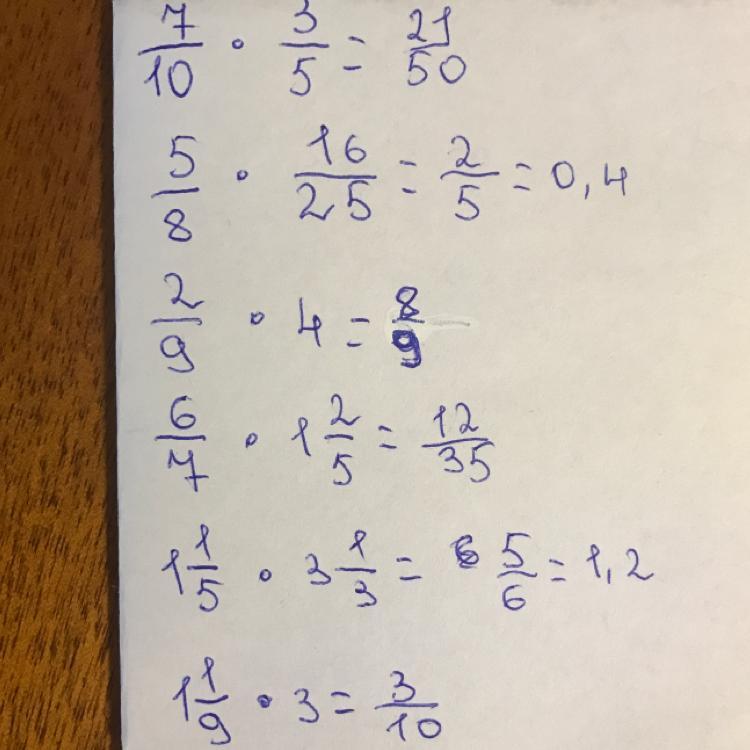 7/10 · 3/5 = 21/50
5/8 · 16/25 = 2/5 = 0,4
2/9 · 4 = 8/9
6/7 · 1 2/5 = 12/35
1 1/5 · 3 1/3 = 6 5/6 = 1,2
1 1/9 · 3 = 3/10